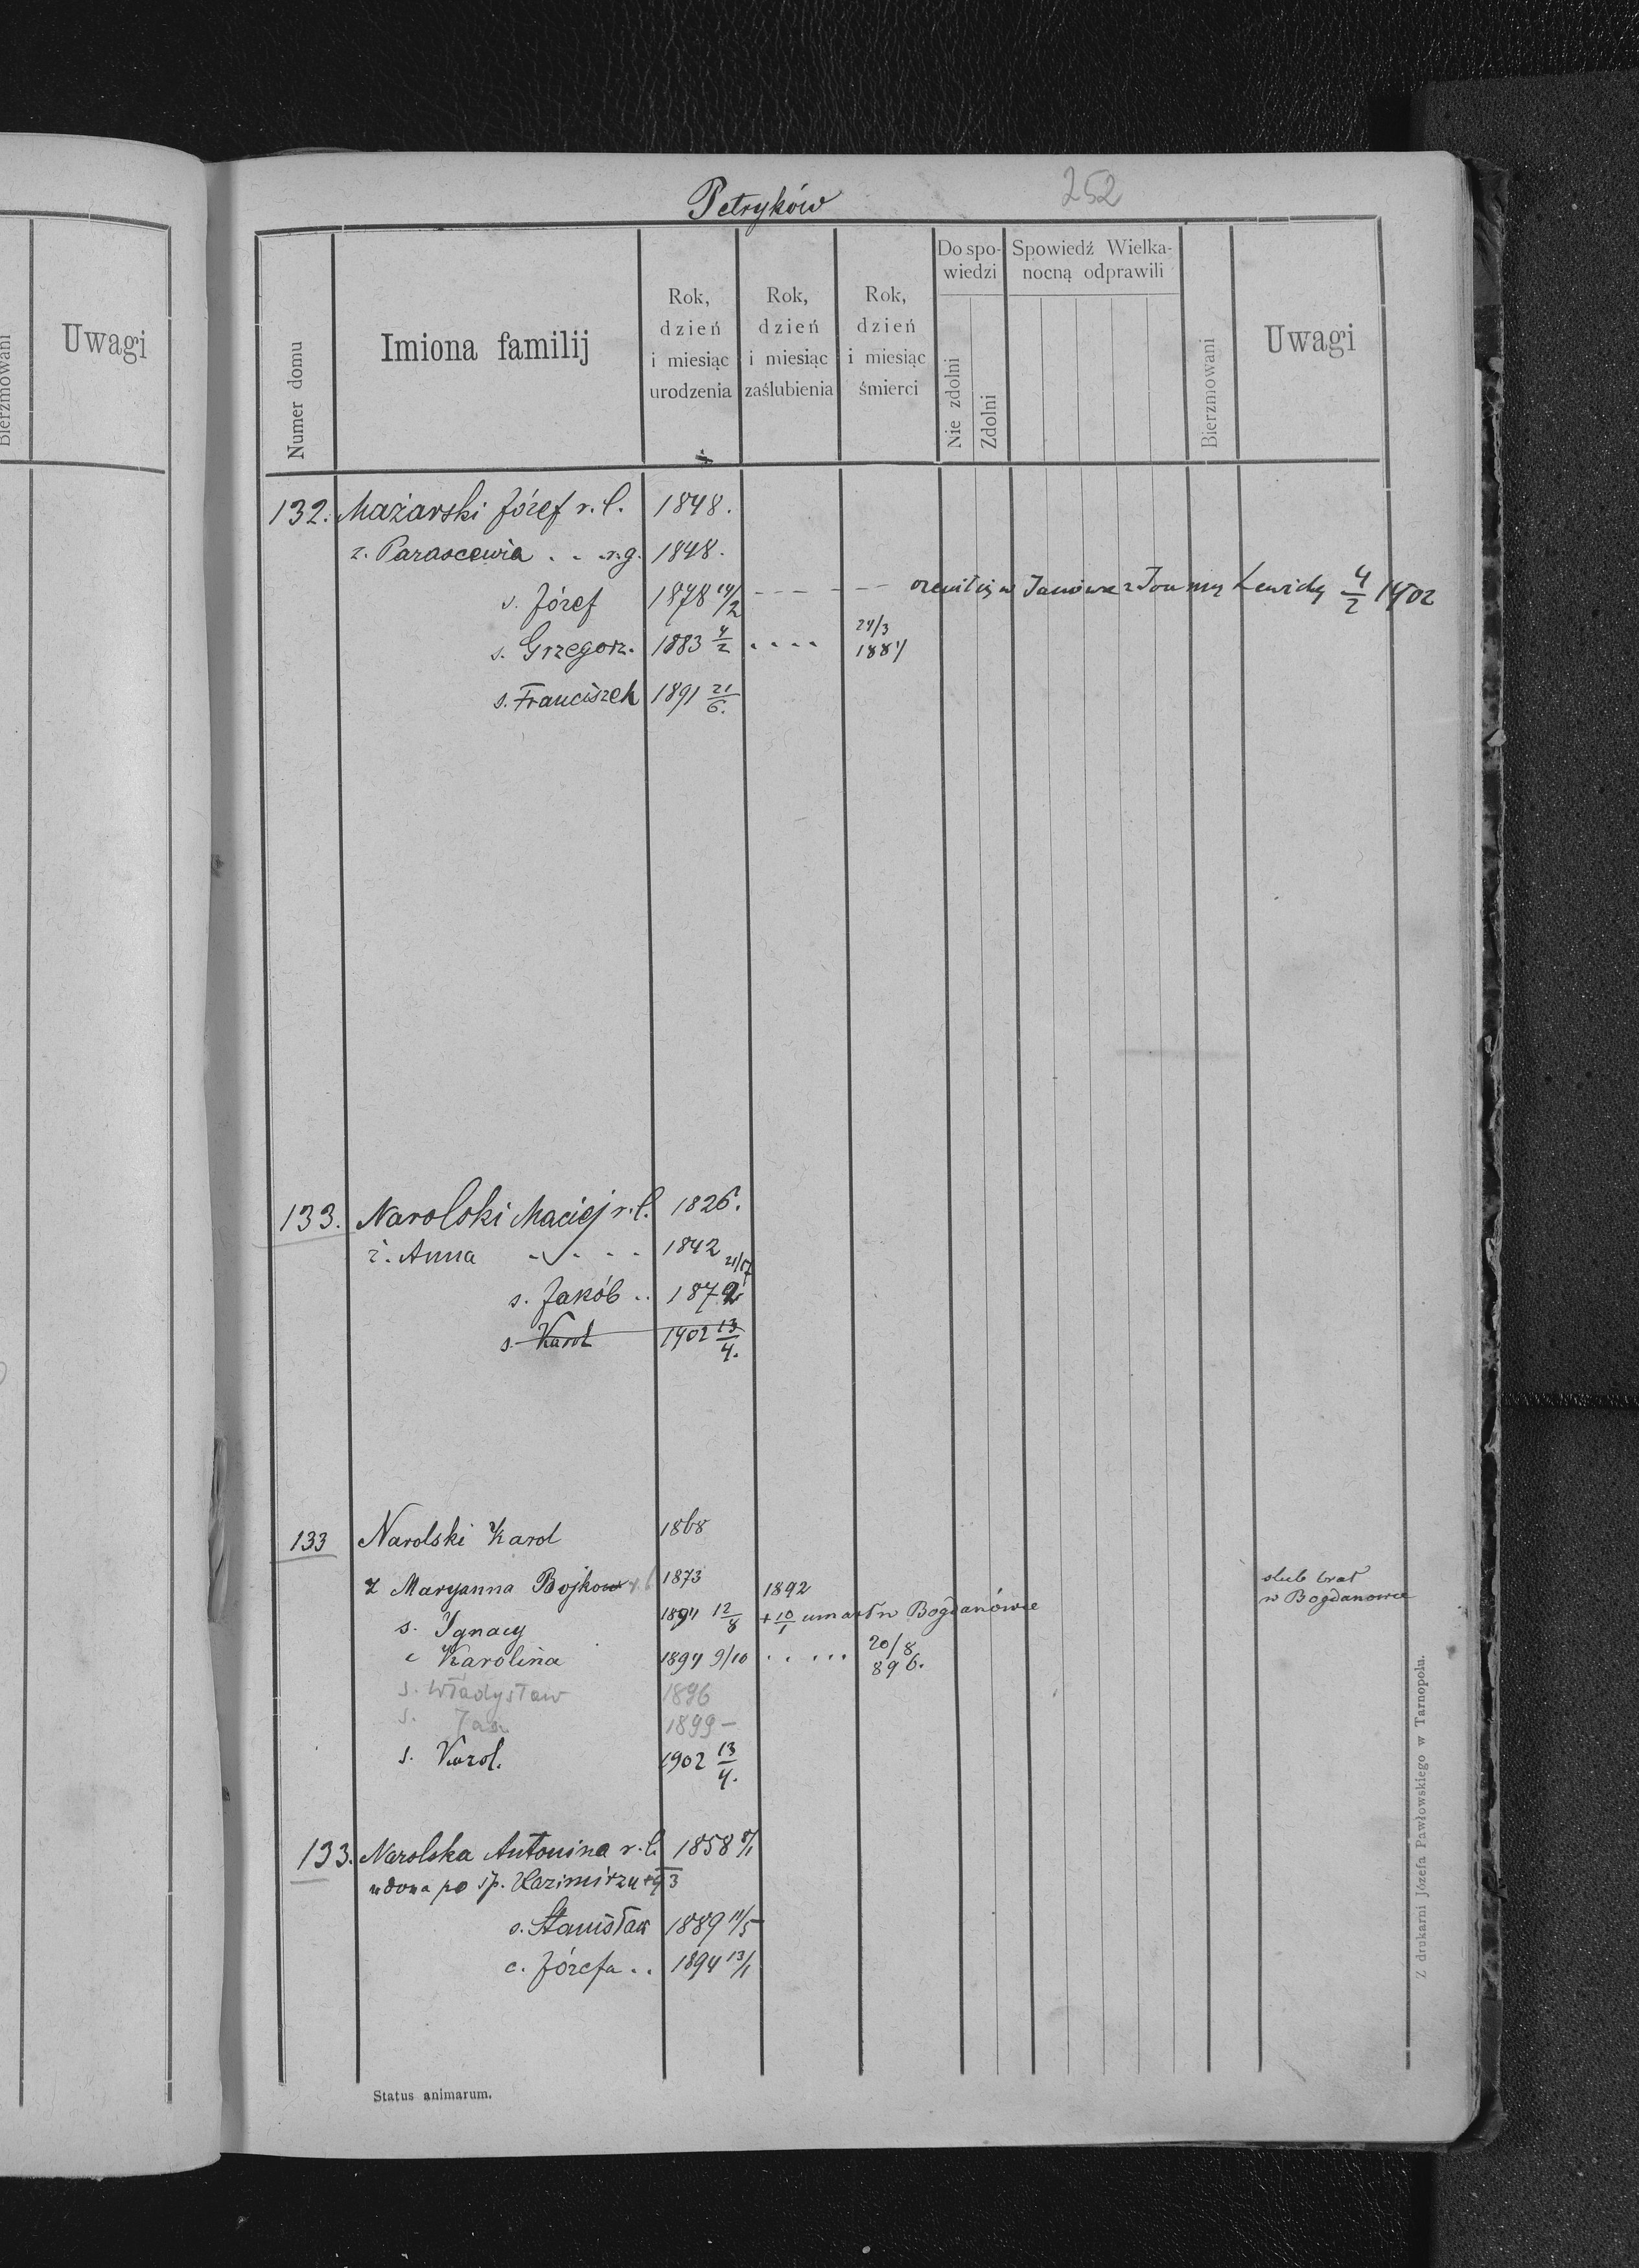 Petryków
252
Uwagi
Bierzmowani
Numer domu
Imiona familij
Rok,
dzień
i miesiąc
urodzenia
Rok,
dzień
i miesiąc
zaślubienia
Rok,
dzień
i miesiąc
śmierci
Do spo-
wiedzi
Nie zdolni
Zdolni
Spowiedź Wielka-
nocną odprawili
Bierzmowani
Uwagi
132. Mażarski Józef r. l. 1848.
ż. Parascewia . . r. g. 1848.
s. Józef 1878 14/2 - - - - - ożenił się w Janówce z 4/2 1902
s. Grzegorz. 1883 4/2 . . . . 24/3
1884
s. Franciszek 1891 21/6.
133. Narolski Maciej r. l. 1826.
ż. Anna . . . . 1842
s. Jakób . . 1872
s. Karol 1902 13/4.
133 Narolski Karol 1868
ż Maryanna Bojkow 1873 1892 ślub brał
w Bogdanowce
s. Ignacy 12/8 + 10/1 umarł w Bogdanówce
c Karolina 1894 9/10 . . . . . 20/8
896.
s. Władysław 1896
s. Jan 1899 -
s. Karol. 1902 13/4.
133. Narolska Antonina r. l. 1858
wdowa po śp. Kazimirzu + 93
s. Stanisław 1889 11/5
c. Józefa . . 1894 13/1
Status animarum.
Z drukarni Józefa Pawłowskiego w Tarnopolu.